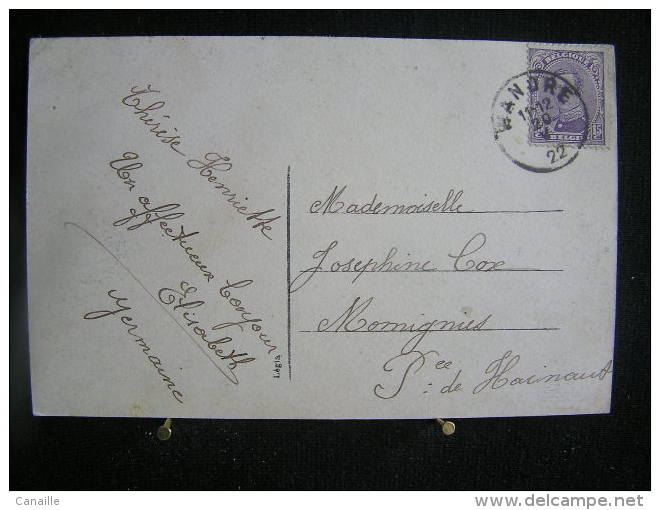 Thérèse Henriette
Un affectueux bonjour
d'Elisabeth
Germaine
Legia
Mademoiselle
Josephine Cox
Momignies
Pce: de Hainaut
BELGIQUE
BELGI
15
WANDRE
11-12
29
22
Canaille
www.delcampe.net